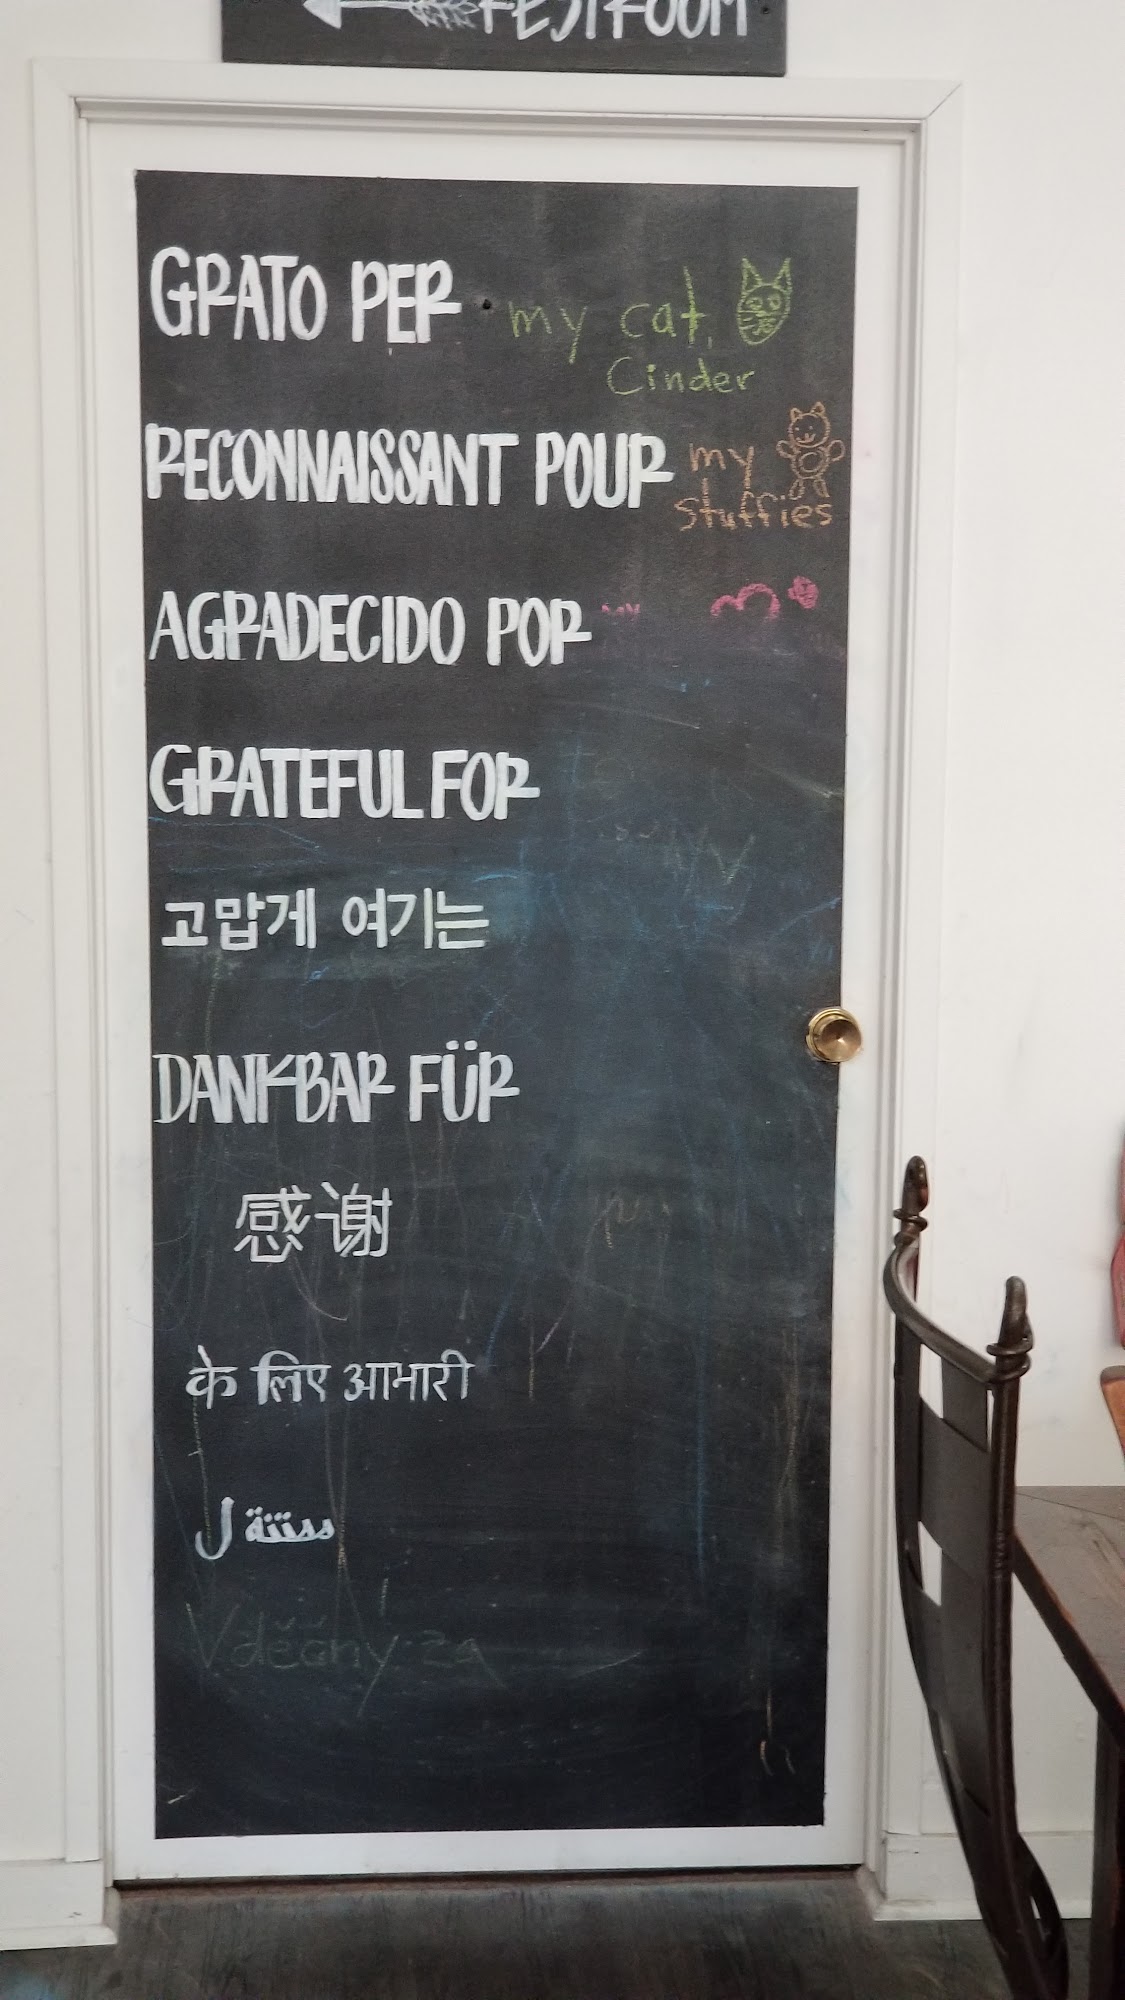 RESTROOM
GRATO PER my cat,
Cinder
RECONNAISSANT POUR my
stuffies
AGRADECIDO POR MY
GRATEFUL FOR
고맙게 여기는
DANKBAR FÜR
感谢
के लिए आभारी
Vděčný za